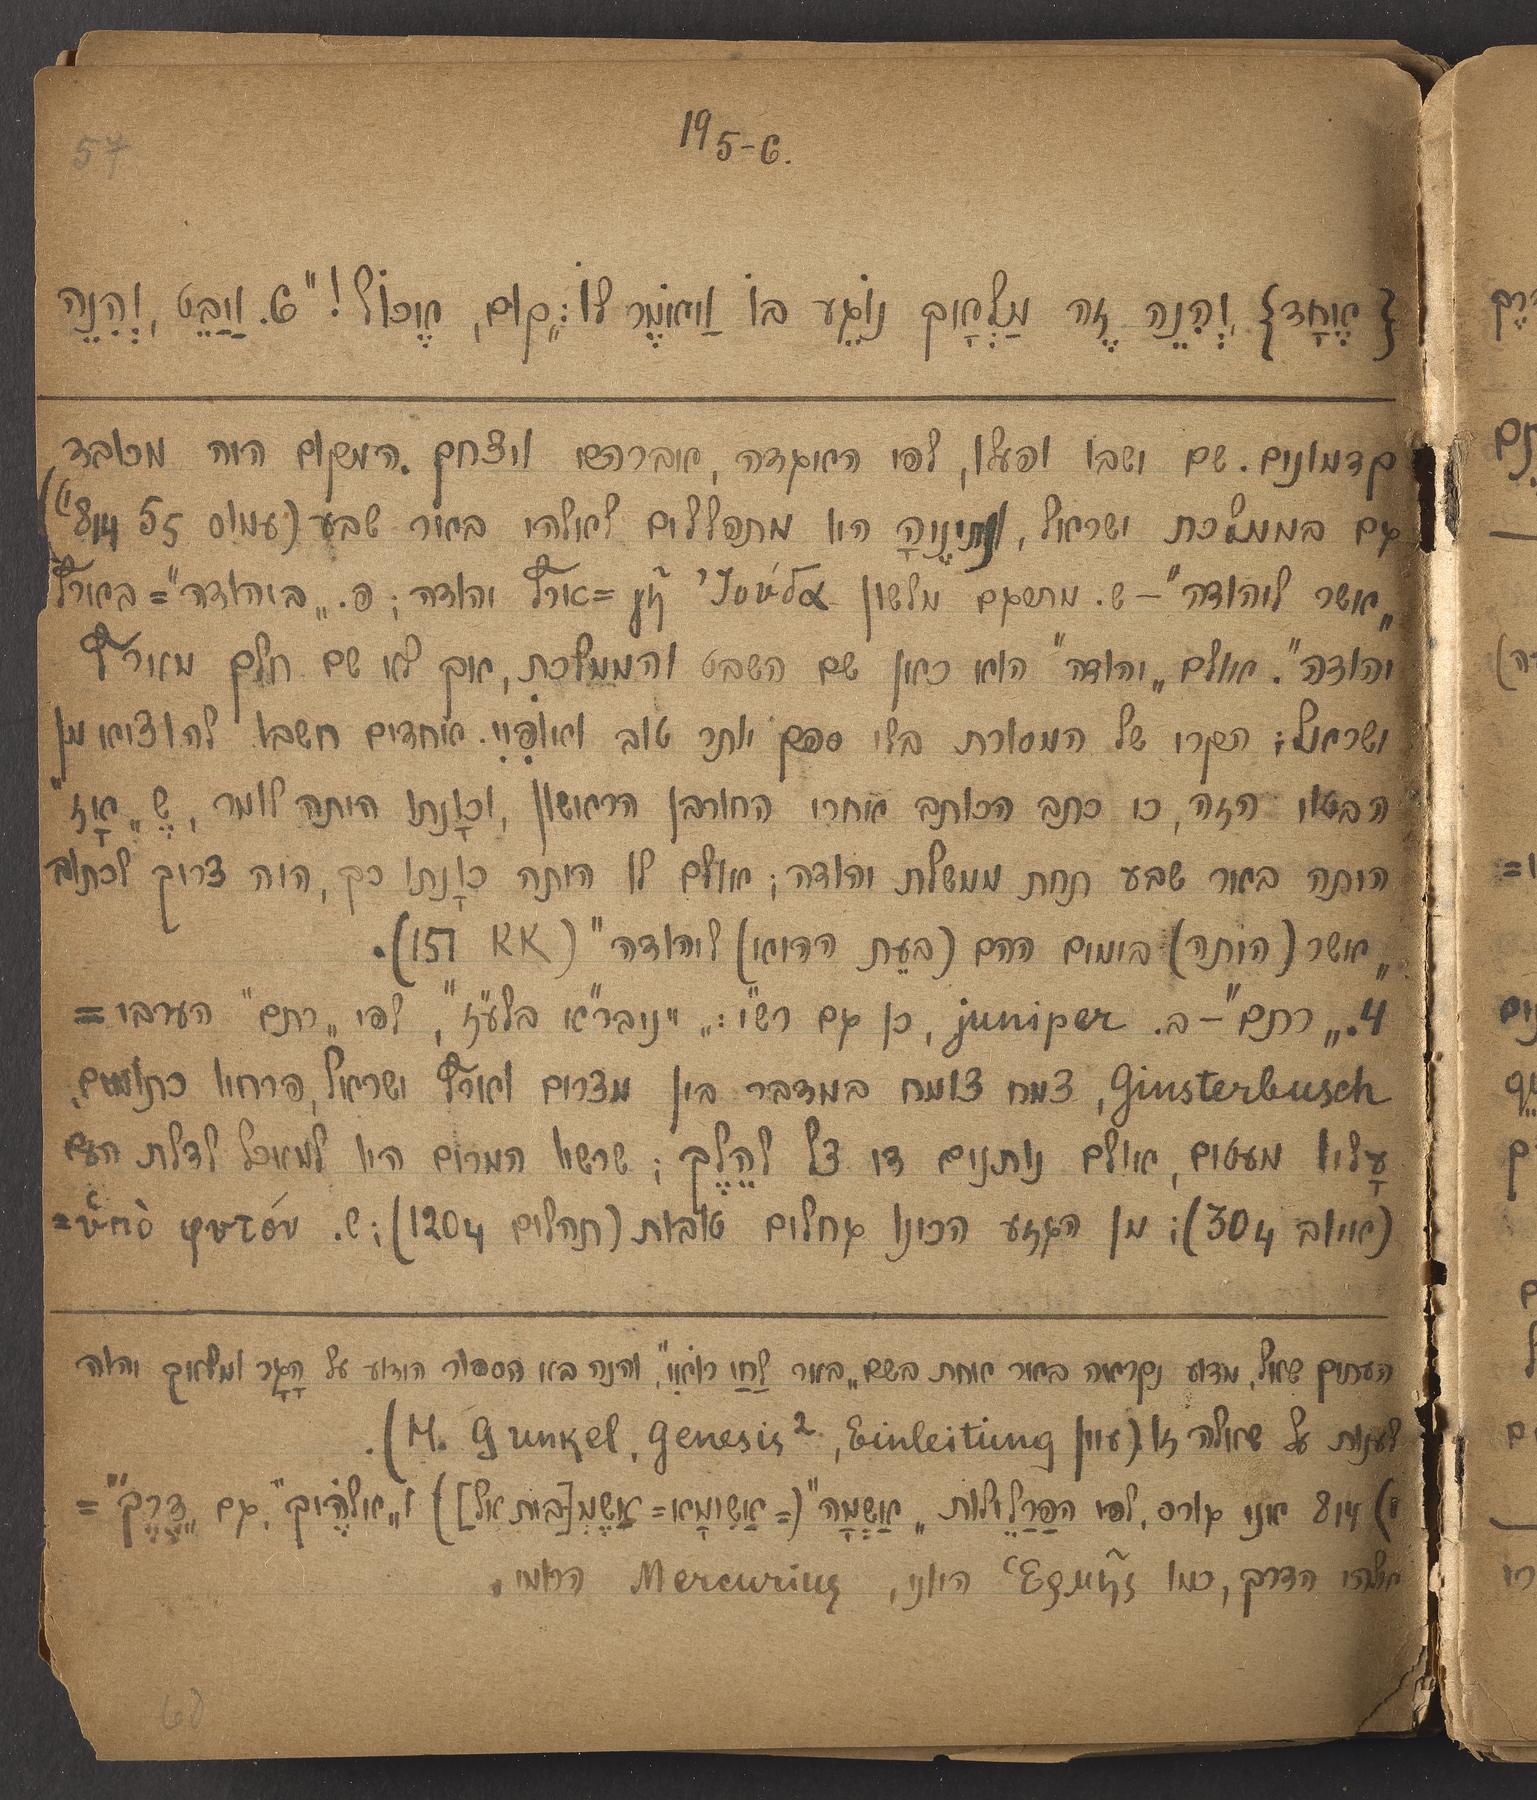 57
19 5-6.
{אֶחָד} ,וְהִנֵּה זֶה מַלְאָךְ נוֹגֵעַ בּוֹ וַיֹּאמֶר לוֹ: „קום, אֱכוֹל!" 6. וַיַּבֵּט ,וְהִנֵּה
קדמונים. שם ישבו ופעלו, לפי האגדה, אברהם ויצחק. המקום היה מכובד
גם בממלכת ישראל, היו מתפללים לאלהי באר שבע (עמוס 5 5 8 14
„אשר ליהודה" – ש. מתרגם מלשון Ἰούδα γῆ = ארץ יהודה; פ. „ביהודה" = בארץ
יהודה". אולם „יהודה" הוא כאן שם השבט והממלכת, אך לא שם חלק מארץ
ישראל; הקרי של המסורת בלי ספק יותר טוב ואופיי. אחדים חשבו להוציא מן
הבטוי הזה, כי כתב הכותב אחרי החורבן הראשון, וכַוָנתו היתה לומר, שֶ„אָז"
היתה באר שבע תחת ממשלת יהודה; אולם לו היתה כַוָנתו כך, היה צריך לכתוב
„אשר (היתה) בימים ההם (בעת ההיא) ליהודה" (KK 151).
4. „רתם" – ב. juniper, כן גם רש"י: „יניבר"א בלע"ז", לפי „רתם" הערבי =
Ginsterbusch, צמח צומח במדבר בין מצרים וארץ ישראל, פרחיו כתומים,
עָליו מעטים, אולם נותנים די צל לַהֵלֶךְ; שרשיו המרים היו למאכל לדלת העם
(איוב 30 4); מן הגזע הכינו גחלים טובות (תהלים 120 4); ש. ὑπὸ φυτόν =
העתיק שאל, מדוע נקראה באר אחת בשם „באר לַחַי רוֹאִי", והנה בא הספור הידוע על הָגָר ומלאך יהוה
לענות על שאלה זו (עיין H. Gunkel, Genesis², Einleitung).
8 14 אני גורס, לפי הפַרַלֵילות „אַשְמָה" (= אַשִׁימָא = אַשֶם [בית אל]) ו„אלהֶיךָ", גם „דֶרֶךְ" =
אלהי הדרך, כמו Ἑρμῆς היוני, Mercurius הרומי.
60